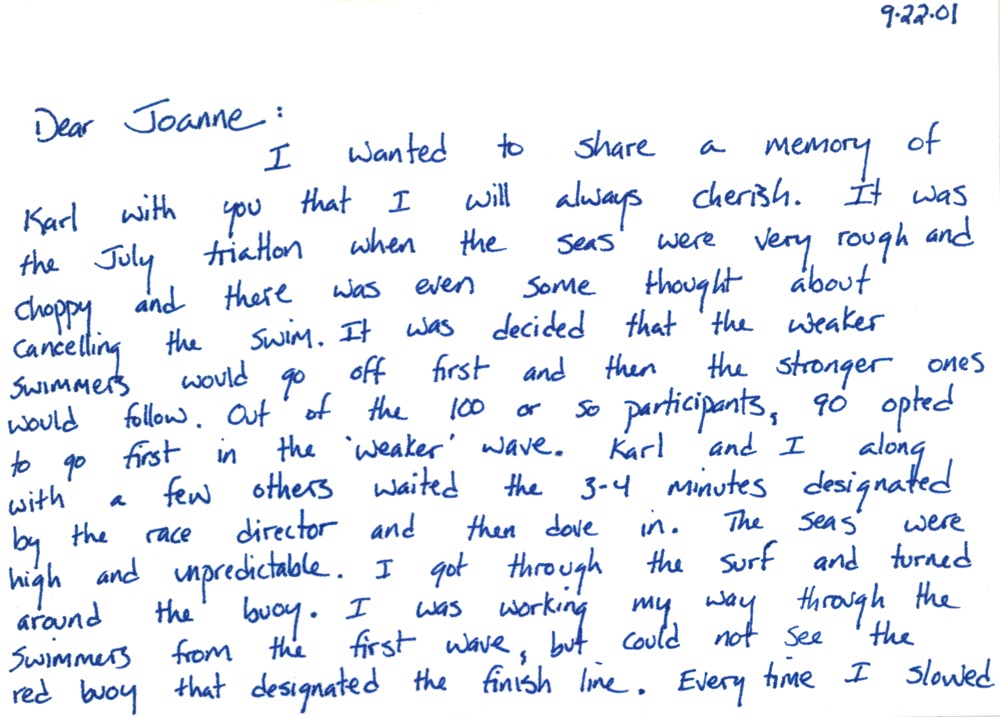 9.22.01
Dear Joanne:
I wanted to share a memory of
Karl with you that I will always cherish. It was
the July triatlon when the seas were very rough and
choppy and there was even some thought about
cancelling the swim. It was decided that the weaker
swimmers would go off first and then the stronger ones
would follow. Out of the 100 or so participants, 90 opted
to go first in the 'weaker' wave. Karl and I along
with a few others waited the 3-4 minutes designated
by the race director and then dove in. The seas were
high and unpredictable. I got through the surf and turned
around the buoy. I was working my way through the
swimmers from the first wave, but could not see the
red buoy that designated the finish line. Every time I slowed